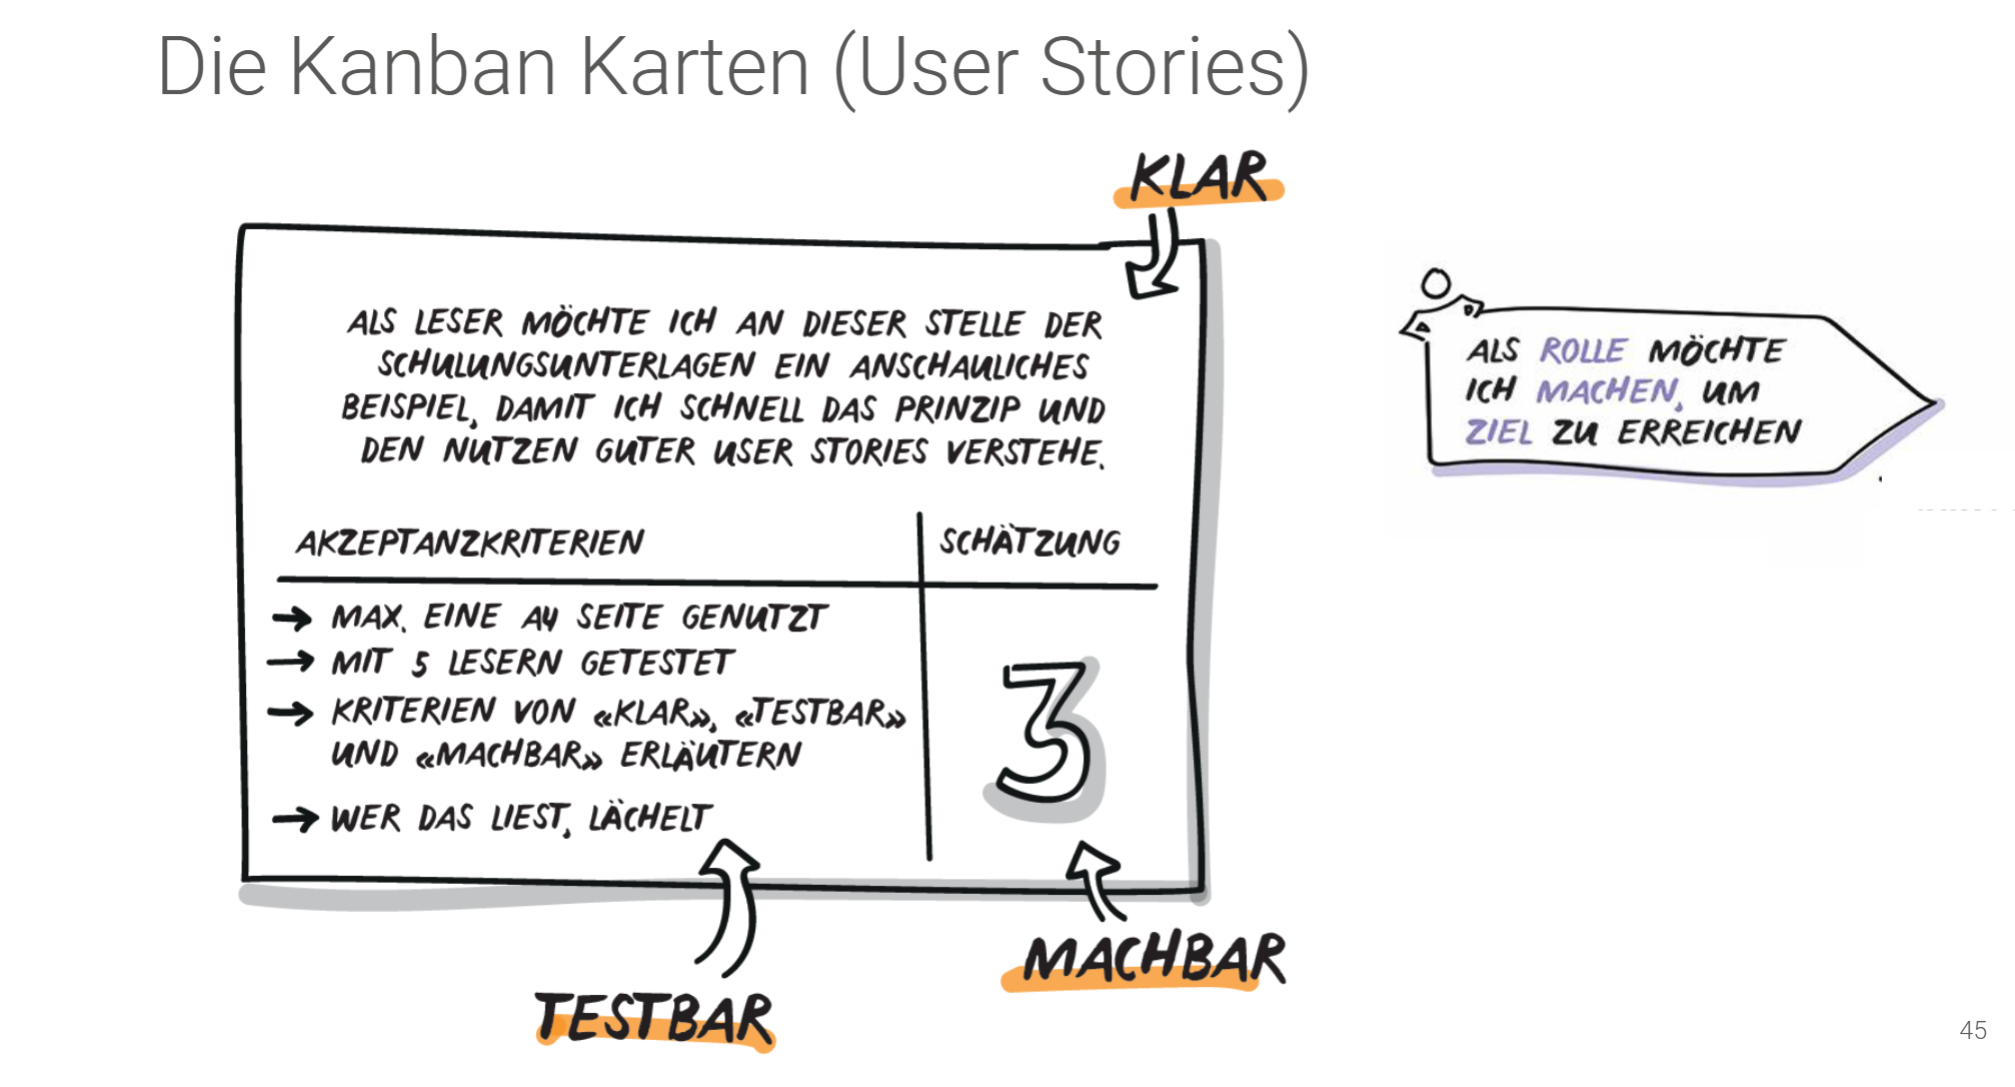 Die Kanban Karten (User Stories)
KLAR
ALS LESER MÖCHTE ICH AN DIESER STELLE DER
SCHULUNGSUNTERLAGEN EIN ANSCHAULICHES
BEISPIEL, DAMIT ICH SCHNELL DAS PRINZIP UND
DEN NUTZEN GUTER USER STORIES VERSTEHE.
AKZEPTANZKRITERIEN
SCHÄTZUNG
→ MAX. EINE A4 SEITE GENUTZT
→ MIT 5 LESERN GETESTET
→ KRITERIEN VON «KLAR», «TESTBAR»
UND «MACHBAR» ERLÄUTERN
→ WER DAS LIEST, LÄCHELT
3
TESTBAR
MACHBAR
ALS ROLLE MÖCHTE
ICH MACHEN, UM
ZIEL ZU ERREICHEN
45